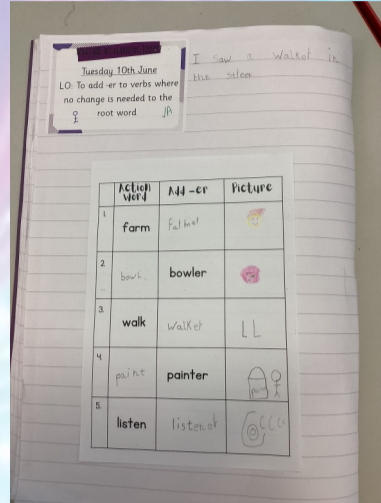 Tuesday 10th June
LO: To add -er to verbs where
no change is needed to the
root word JA
I saw a Walket in
the
Action Word Add -er Picture
1. farm
2. bowl bowler
3. walk walket
4. paint painter
5. listen listenet